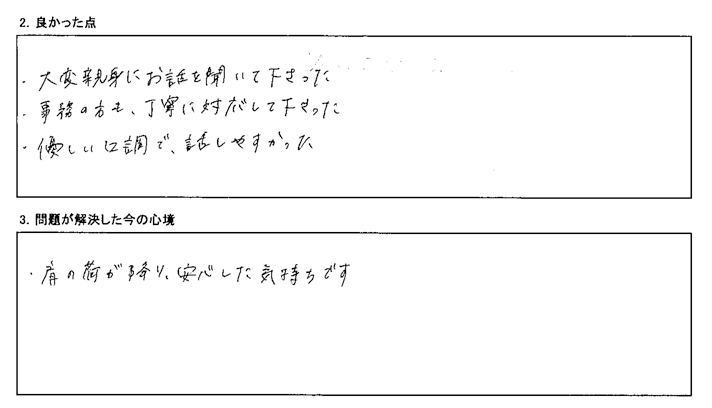 2. 良かった点
・大変親身にお話を聞いて下さった
・事務の方も、丁寧に対応して下さった
・優しい口調で、話しやすかった
3. 問題が解決した今の心境
・肩の荷が降り、安心した気持ちです